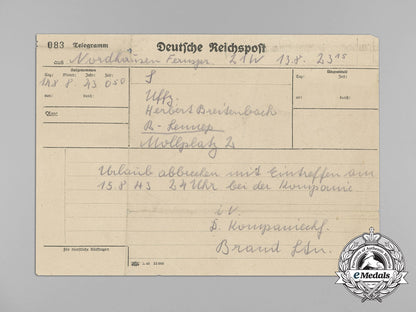 083 Telegramm Deutsche Reichspost
aus Nordhausen Fernspr. 21W 13.8. 23 15
Aufgenommen
Tag: Monat: Jahr: Zeit:
14. 8 43 0 50
von: durch:
S
Uffz.
Herbert Breitenbach
R-Lennep
Mollplatz 2
Urlaub abbrechen mit Eintreffen am
15.8.43 24 Uhr bei der Kompanie.
i.V.
D. Kompaniechf.
Brand Ltn.
Für dienstliche Rückfragen
eMedals